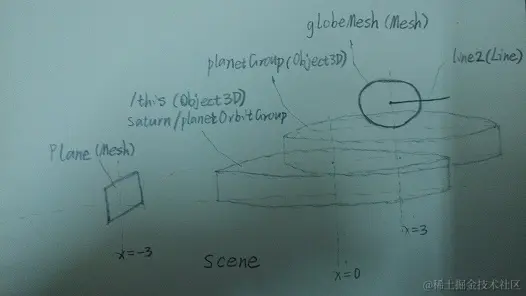 globeMesh(Mesh)
planetGroup(Object3D)
line2(Line)
/this (Object3D)
saturn/planetOrbitGroup
Plane(Mesh)
x=-3
x=3
scene
x=0
@稀土掘金技术社区